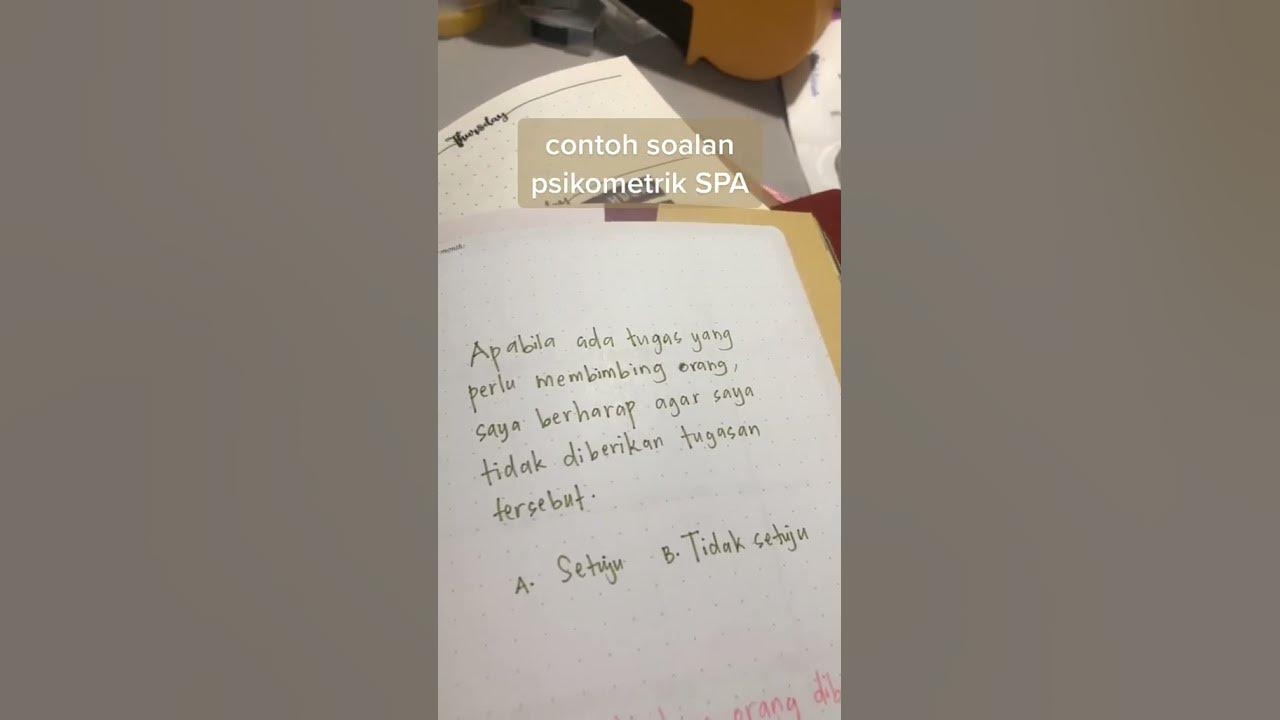 Thursday
contoh soalan
psikometrik SPA
Apabila ada tugas yang
perlu membimbing orang,
saya berharap agar saya
tidak diberikan tugasan
tersebut.
A. Setuju B. Tidak setuju
orang